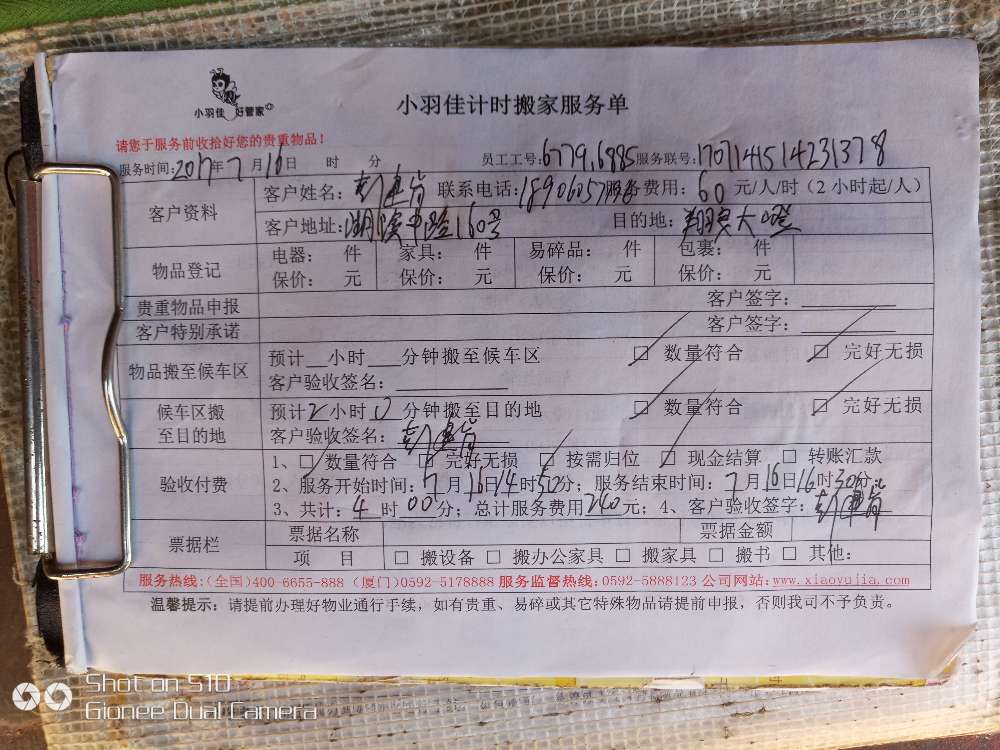 小羽佳 好管家
小羽佳计时搬家服务单
请您于服务前收拾好您的贵重物品！
服务时间：2017年7月16日 时 分 员工工号：6779.6885 服务联号：1707141514231378
客户资料
客户姓名： 联系电话：18906057 服务费用：60元/人/时（2小时起/人）
客户地址：湖滨中路160号 目的地：翔安大嶝
物品登记
电器： 件 家具： 件 易碎品： 件 包裹： 件
保价： 元 保价： 元 保价： 元 保价： 元
贵重物品申报 客户签字：
客户特别承诺 客户签字：
物品搬至候车区
预计 小时 分钟搬至候车区 □ 数量符合 □ 完好无损
客户验收签名：
候车区搬至目的地
预计2小时0分钟搬至目的地 □ 数量符合 □ 完好无损
客户验收签名：
验收付费
1、□ 数量符合 □ 完好无损 □ 按需归位 □ 现金结算 □ 转账汇款
2、服务开始时间：7月16日14时30分；服务结束时间：7月16日16时30分；
3、共计：4时00分；总计服务费用240元；4、客户验收签字：
票据栏
票据名称 票据金额
项 目 □ 搬设备 □ 搬办公家具 □ 搬家具 □ 搬书 □ 其他：
服务热线：(全国)400-6655-888 (厦门)0592-5178888 服务监督热线：0592-5888123 公司网站：www.xiaoyujia.com
温馨提示：请提前办理好物业通行手续，如有贵重、易碎或其它特殊物品请提前申报，否则我司不予负责。
Shot on S10
Gionee Dual Camera